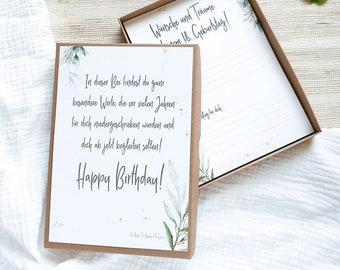 Wünsche und Träume
zum 18. Geburtstag!
In dieser Box findest du ganz
besondere Worte, die vor vielen Jahren
für dich niedergeschrieben wurden und
dich ab jetzt begleiten sollen!
Happy Birthday!